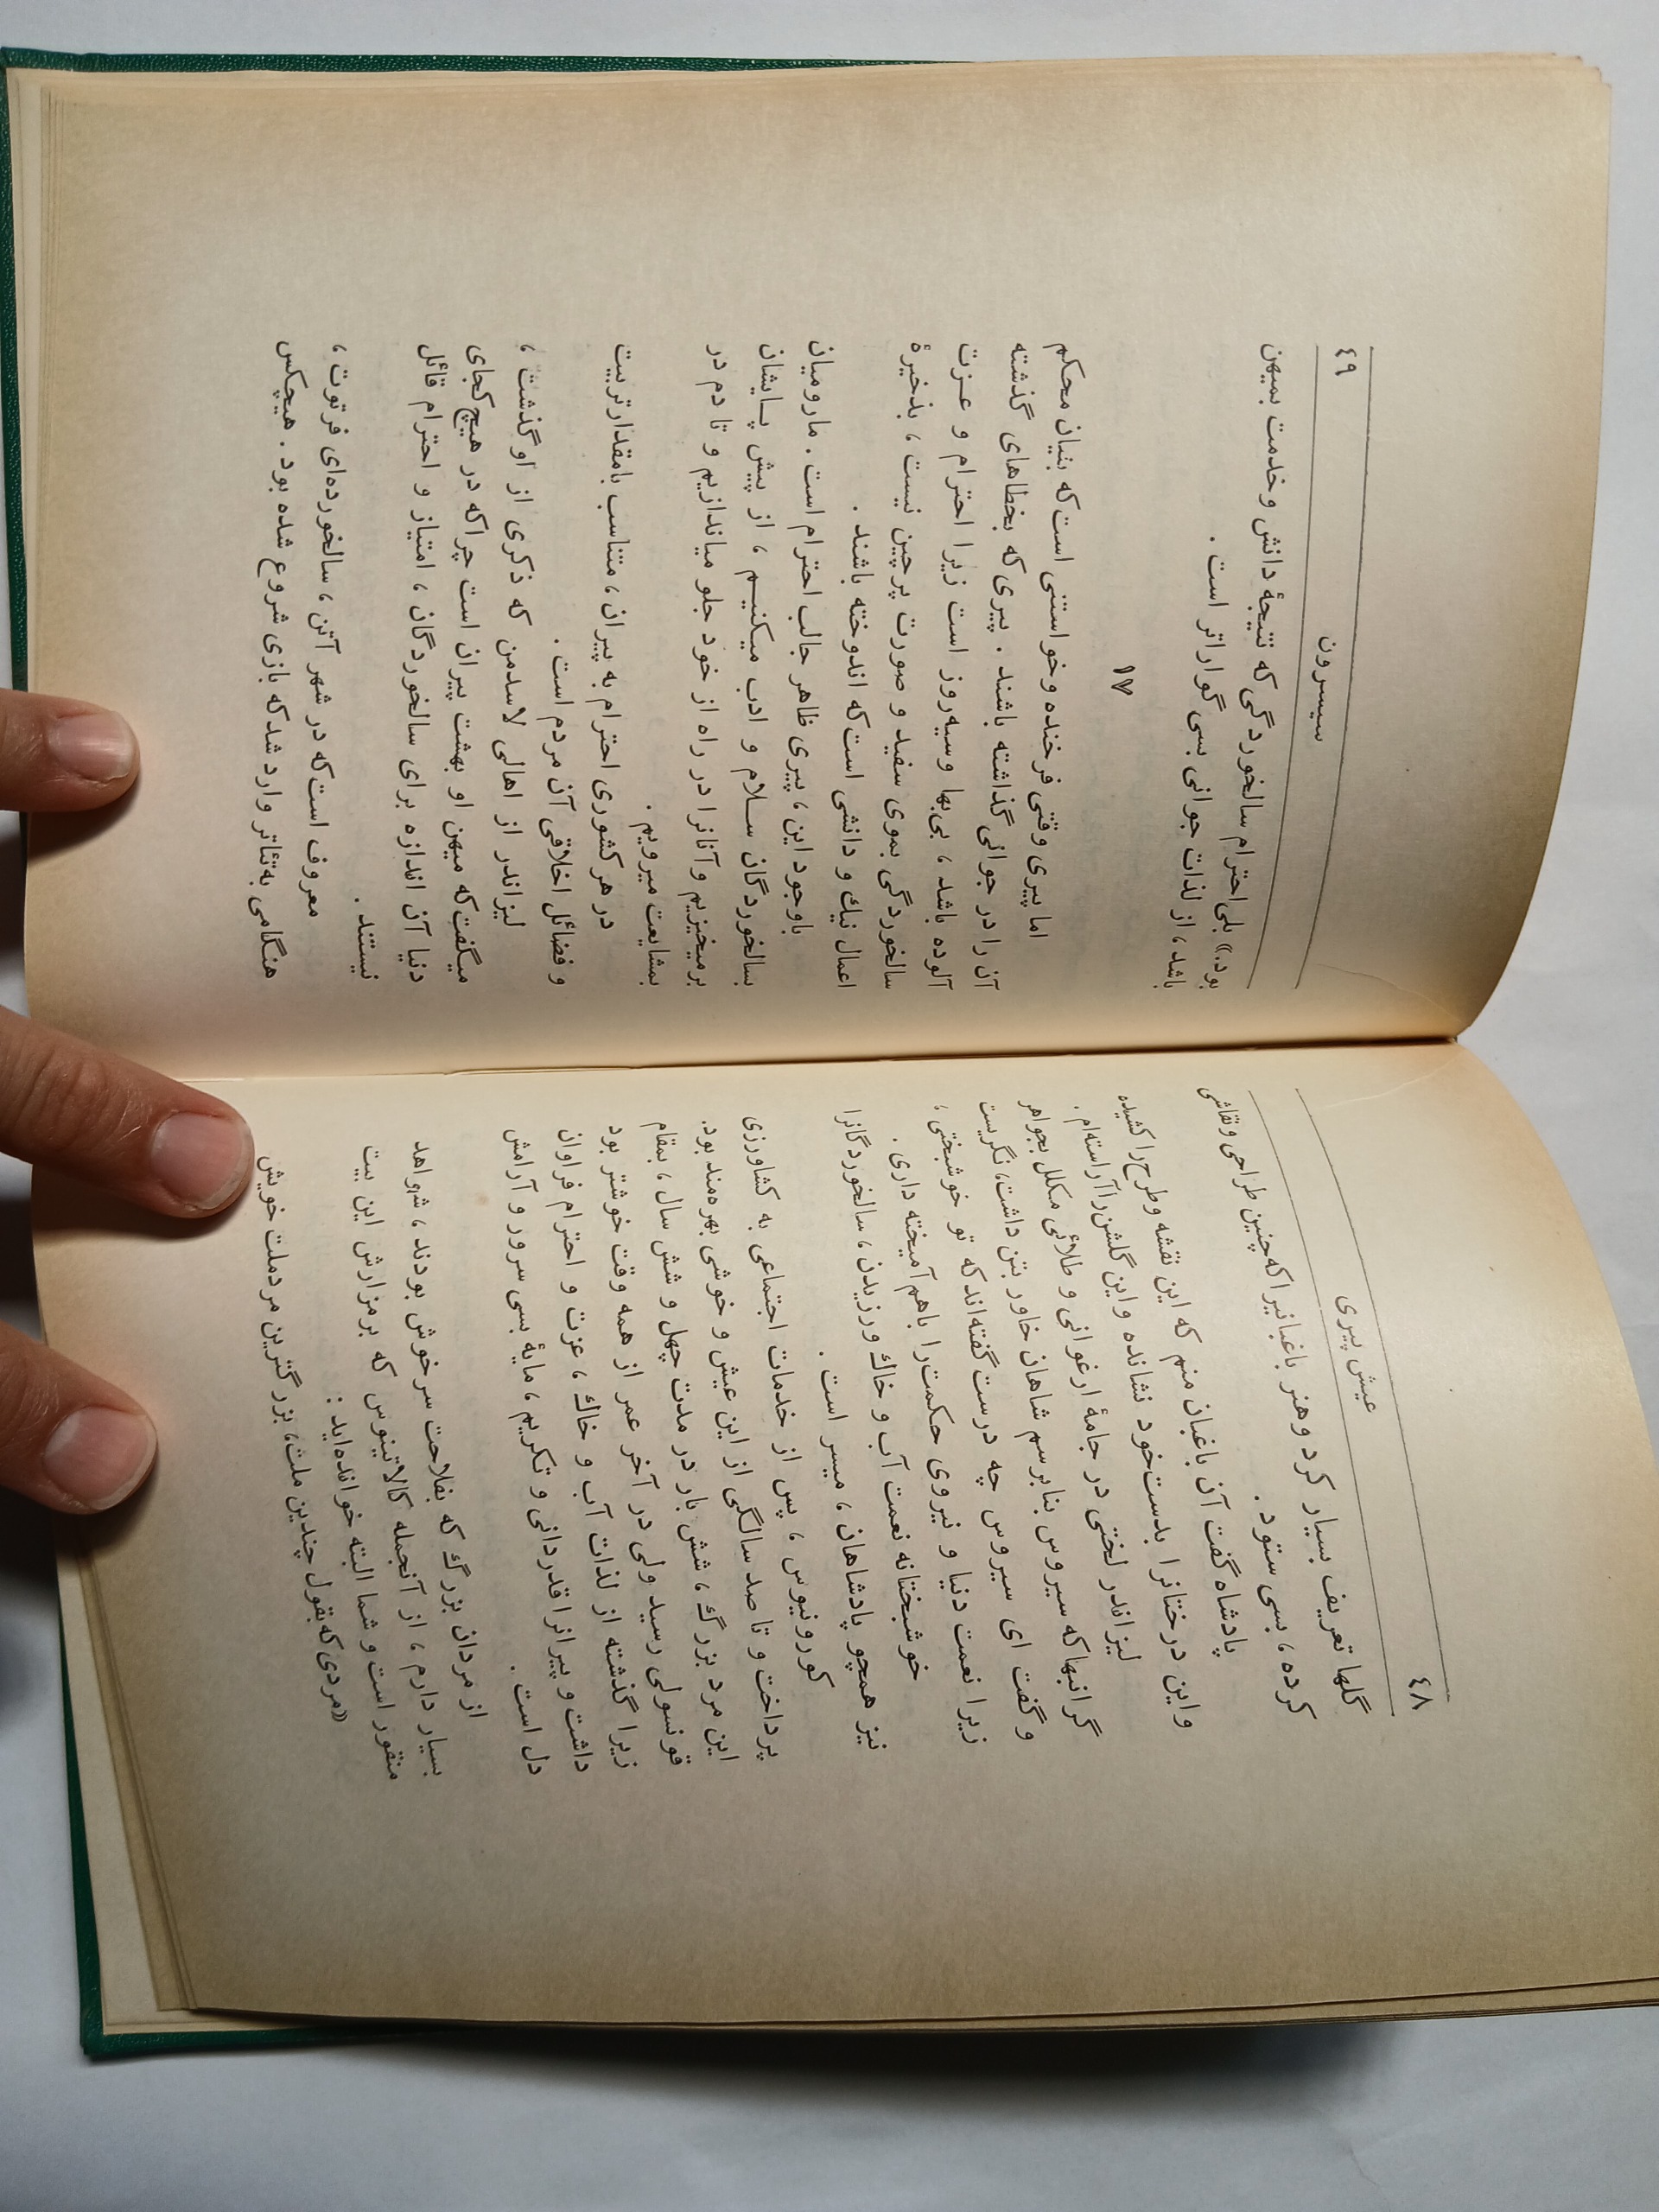 ٤٨
عیش پیری
گلها تعریف بسیار کرد وهنر باغبانیرا که چنین طراحی ونقاشی
کرده، بسی ستود .
پادشاه گفت آن باغبان منم که این نقشه وطرح را کشیده
واین درختانرا بدست خود نشانده واین گلشن را آراسته‌ام .
لیزاندر لختی در جامهٔ ارغوانی و طلائی مکلل بجواهر
گرانبها که سیروس بنابرسم شاهان خاور بتن داشت، نگریست
و گفت ای سیروس چه درست گفته‌اند که تو خوشبختی ،
زیرا نعمت دنیا و نیروی حکمت را باهم آمیخته داری .
خوشبختانه نعمت آب و خاك ورزیدن ، سالخوردگانرا
نیز همچو پادشاهان ، میسر است .
کورونیوس ، پس از خدمات اجتماعی به کشاورزی
پرداخت و تا صد سالگی از این عیش و خوشی بهره‌مند بود.
این مرد بزرگ، شش بار در مدت چهل و شش سال ، بمقام
قونسولی رسید ولی در آخر عمر از همه وقت خوشتر بود
زیرا گذشته از لذات آب و خاك ، عزت و احترام فراوان
داشت و پیرانرا قدردانی و تکریم ، مایهٔ بسی سرور و آرامش
دل است .
از مردان بزرگ که بفلاحت سرخوش بودند ، شواهد
بسیار دارم ، از آنجمله کالاتینوس که برمزارش این بیت
منقور است و شما البته خوانده‌اید :
«مردی که بقول چندین ملت، بزرگترین مردملت خویش
٤٩
سیسرون
بود.» بلی احترام سالخوردگی که نتیجهٔ دانش وخدمت بمیهن
باشد، از لذات جوانی بسی گواراتر است .
۱۷
اما پیری وقتی فرخنده وخواستنی است که بنیان محکم
آن را در جوانی گذاشته باشند . پیری که بخطاهای گذشته
آلوده باشد ، بی‌بها وسیه‌روز است زیرا احترام و عـزت
سالخوردگی بموی سفید و صورت پرچین نیست ، بذخیرهٔ
اعمال نیك و دانشی است که اندوخته باشند .
باوجود این ، پیری ظاهر جالب احترام است . مارومیان
بسالخوردگان سـلام و ادب میکنیـم ، از پیش پـایشان
برمیخیزیم وآنانرا در راه از خود جلو میاندازیم و تا دم در
بمشایعت میرویم .
در هر کشوری احترام به پیران ، متناسب بامقدار تربیت
و فضائل اخلاقی آن مردم است .
لیزاندر از اهالی لاسدمن که ذکری از او گذشت ،
میگفت که میهن او بهشت پیران است چراکه در هیچ کجای
دنیا آن اندازه برای سالخوردگان ، امتیاز و احترام قائل
نیستند .
معروف است که در شهر آتن ، سالخورده‌ای فرتوت ،
هنگامی به‌تئاتر وارد شد که بازی شروع شده بود . هیچکس